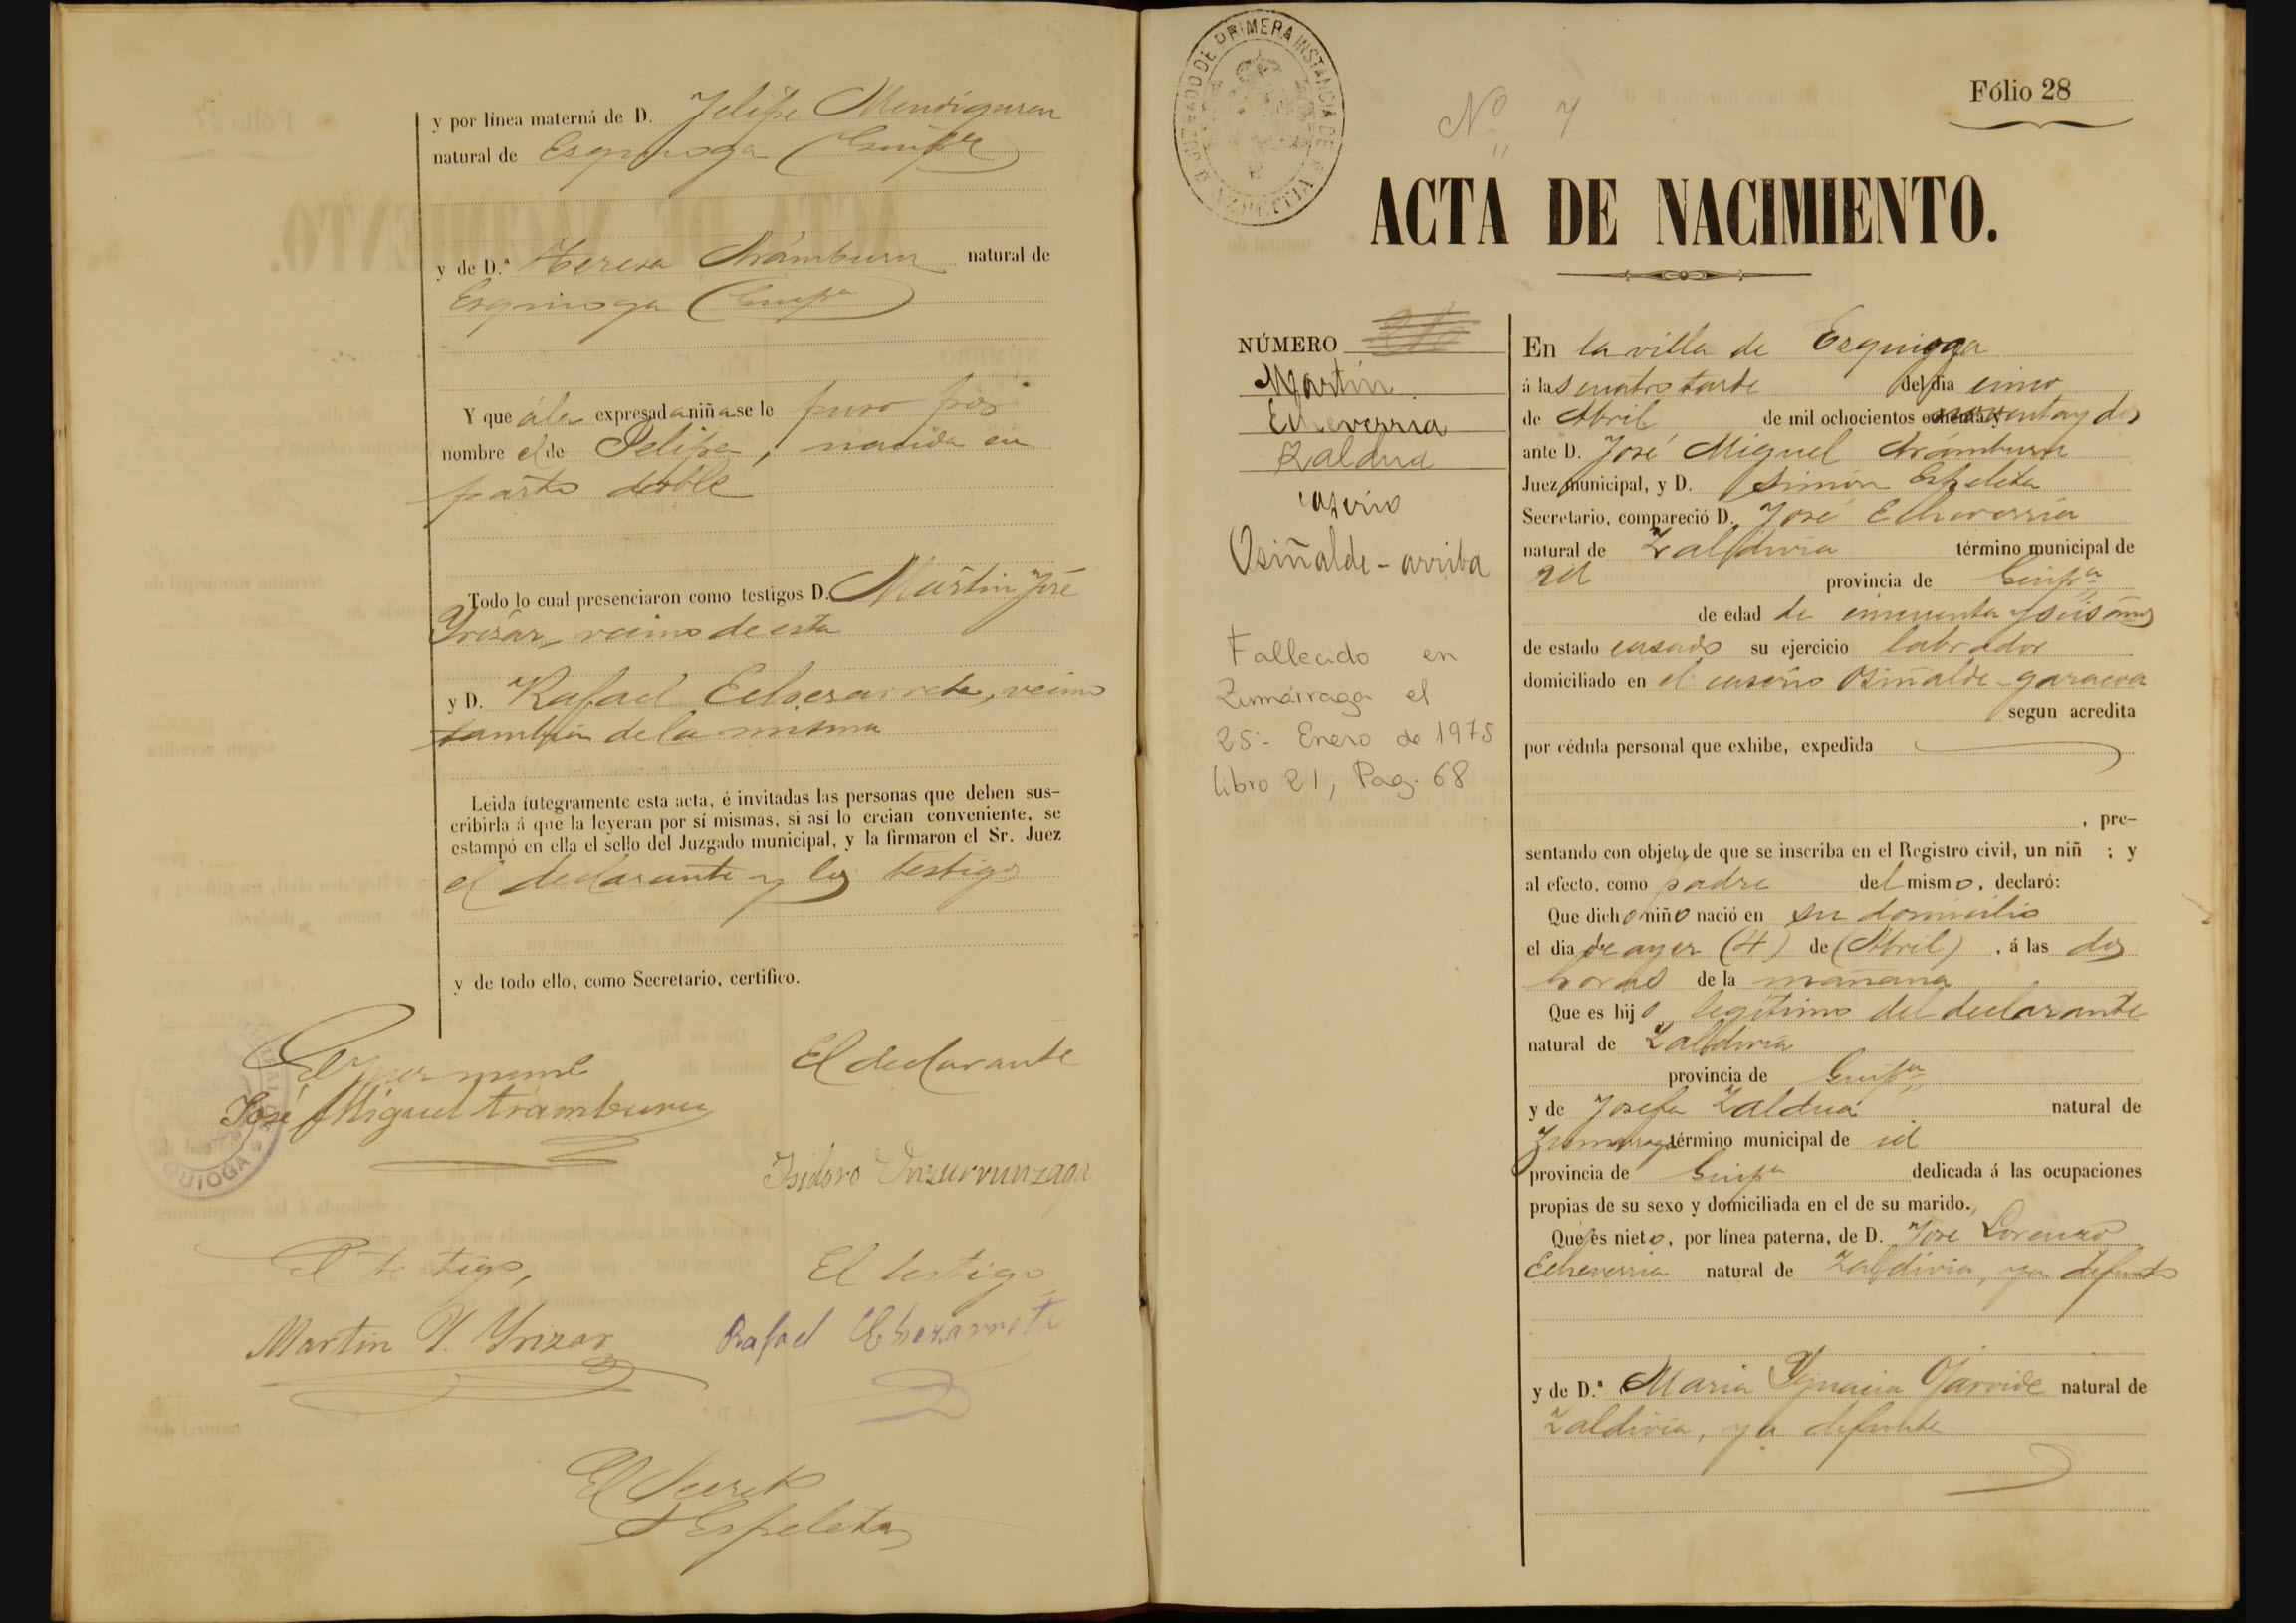 y por línea materná de D. Felipe Mendiguren
natural de Esquioga (Guipª)
y de D.ª Teresa Arámburu natural de
Esquioga (Guipª)
Y que á la expresada niña se le puso por
nombre el de Felipa, nacida en
parto doble
Todo lo cual presenciaron como testigos D. Martin José
Yrizar, vecino de esta
y D. Rafael Echezarreta, vecino
tambien de la misma
Leida íntegramente esta acta, é invitadas las personas que deben sus-
cribirla á que la leyeran por sí mismas, si así lo creian conveniente, se
estampó en ella el sello del Juzgado municipal, y la firmaron el Sr. Juez
el declarante y los testigos
y de todo ello, como Secretario, certifico.
El Juez munl
El declarante
José Miguel Aramburu
QUIOGA
Isidoro Unzurrunzaga
El testigo,
El testigo
Martin J. Yrizar
Rafael Echezarreta
El Secret.º
S Espeleta
JUZGADO DE PRIMERA INSTANCIA DE AZPEITIA
Nº 7
Fólio 28
ACTA DE NACIMIENTO.
NÚMERO
Martin
Echeverria
Zaldua
caserio
Osiñalde - arriba
Fallecido en
Zumárraga el
25- Enero de 1975
libro 21, Pag. 68
En la villa de Esquioga
á las cuatro tarde del dia cinco
de Abril de mil ochocientos ochenta y noventa y dos
ante D. José Miguel Arámburu
Juez municipal, y D. Simón Espeleta
Secretario, compareció D. José Echeverria
natural de Zaldivia término municipal de
id provincia de Guipª
de edad de cincuenta y seis años
de estado casado su ejercicio labrador
domiciliado en el caserio Osiñalde-garaecoa
segun acredita
por cédula personal que exhibe, expedida
, pre-
sentando con objeto de que se inscriba en el Registro civil, un niñ ; y
al efecto, como padre del mismo, declaró:
Que dicho niño nació en su domicilio
el dia de ayer (4) de (Abril) , á las dos
horas de la mañana
Que es hijo legitimo del declarante
natural de Zaldivia
provincia de Guipª
y de Josefa Zaldua natural de
Zumarraga término municipal de id
provincia de Guipª dedicada á las ocupaciones
propias de su sexo y domiciliada en el de su marido.
Que es nieto, por línea paterna, de D. José Lorenzo
Echeverria natural de Zaldivia, ya defunto
y de D.ª Maria Ygnacia Garvide natural de
Zaldivia, ya defunta